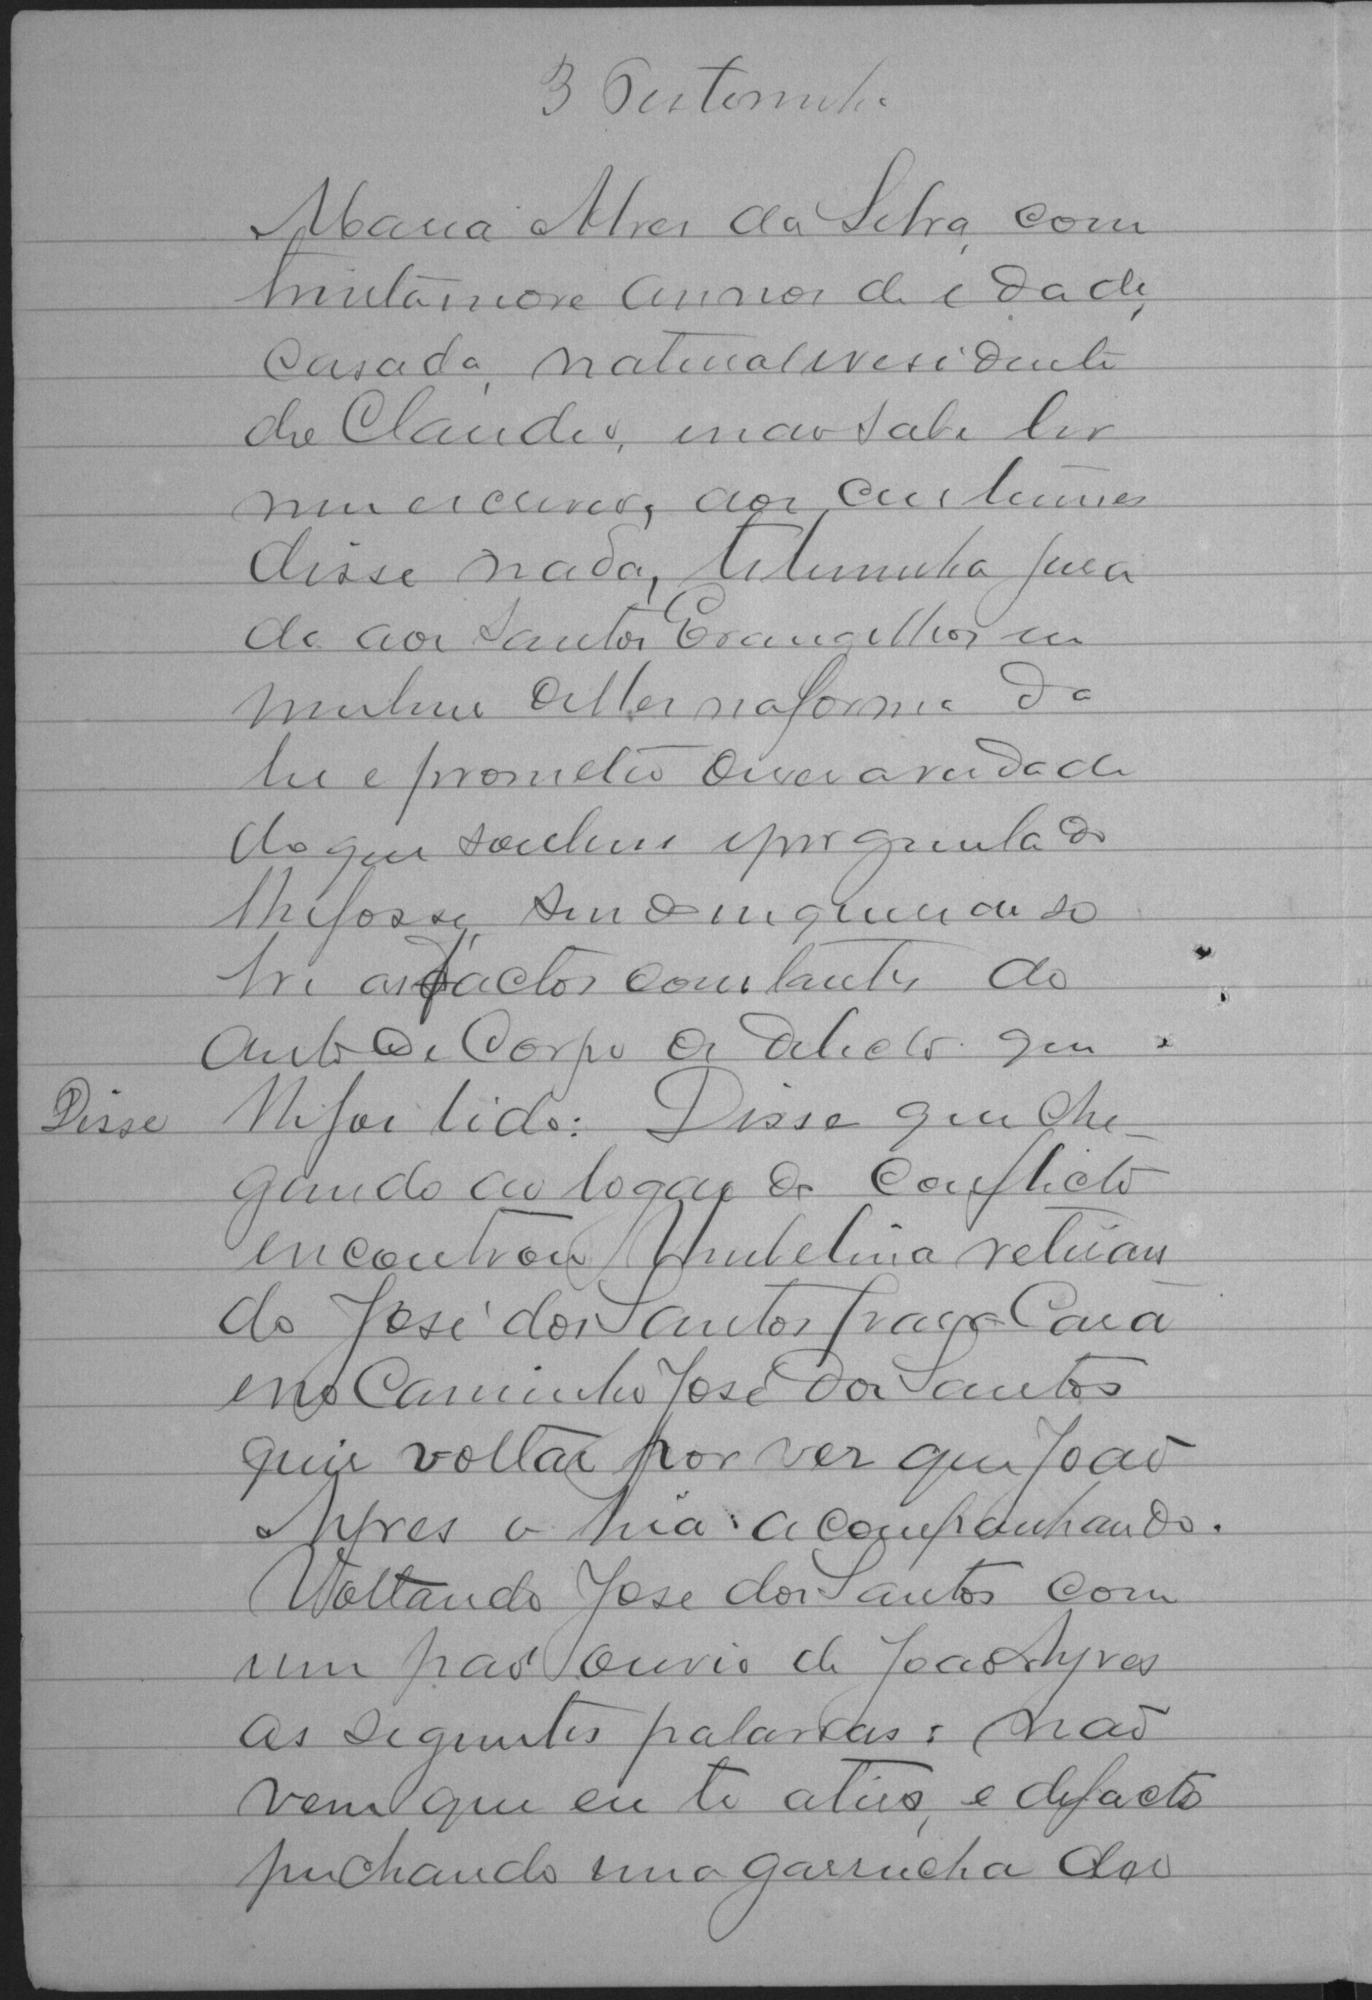 3 Testemunha
Maria Alves da Silva, com
trinta nove annos de idade,
casada, natural e residente
de Claudio, e nao sabe ler
nem escrever, aos custumes
disse nada, testemunha jura
da aos Santos Evangelhos em
um livro delles na forma da
lei e prometeo diser a verdade
do que soubere e perguntado
lhe fosse, sendo inquerida so
bre os factos constantes do
auto de Corpo de delicto que
Disse lhe foi lido: Disse que che_
gando ao logar do conflicto
encontrou Umbelina retiran
do José dos Santos para Casa
e no Caminho José dos Santos
quiz voltar por ver que João
Ayres o hia acompanhando.
Voltando Jose dos Santos com
um pao ouvio de Joao Ayres
as seguintes palavras: não
vem que eu te atiro, e defacto
puchando uma garrucha deo